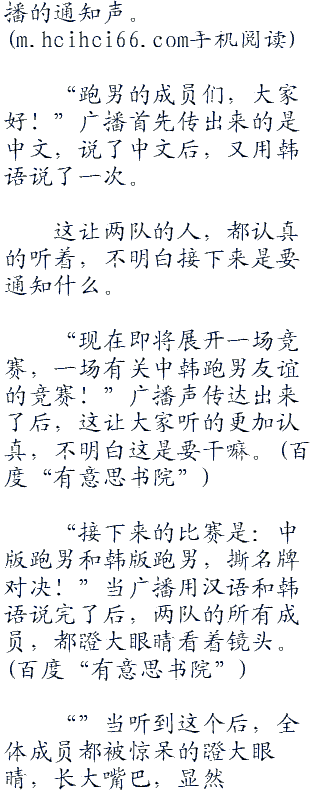 播的通知声。
(m.hcihci66.com手机阅读)
“跑男的成员们，大家
好！”广播首先传出来的是
中文，说了中文后，又用韩
语说了一次。
这让两队的人，都认真
的听着，不明白接下来是要
通知什么。
“现在即将展开一场竞
赛，一场有关中韩跑男友谊
的竞赛！”广播声传达出来
了后，这让大家听的更加认
真，不明白这是要干嘛。(百
度“有意思书院”)
“接下来的比赛是：中
版跑男和韩版跑男，撕名牌
对决！”当广播用汉语和韩
语说完了后，两队的所有成
员，都瞪大眼睛看着镜头。
(百度“有意思书院”)
“”当听到这个后，全
体成员都被惊呆的瞪大眼
睛，长大嘴巴，显然